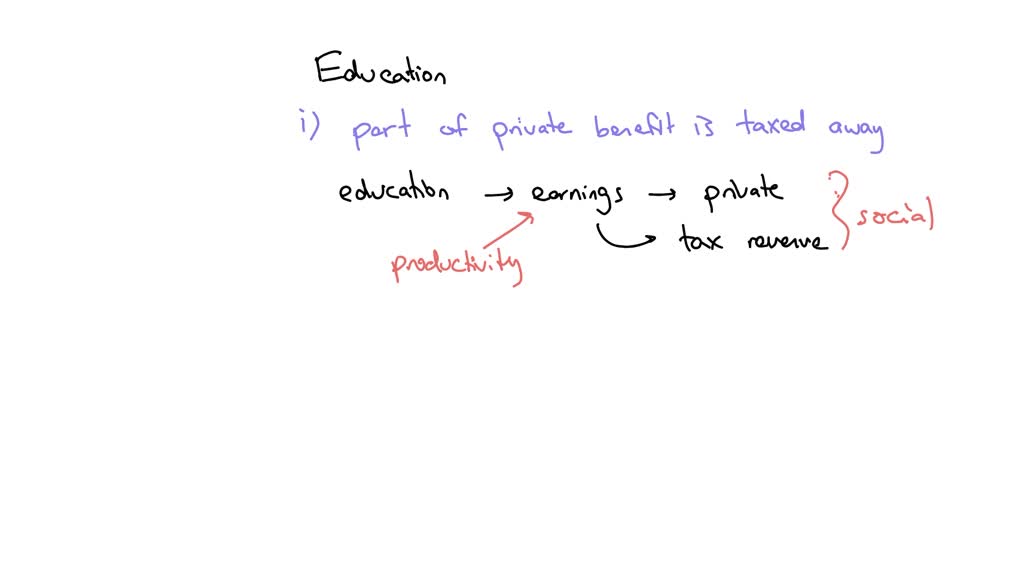 Education
i) part of private benefit is taxed away
education → earnings → private
tax revenue
social
productivity